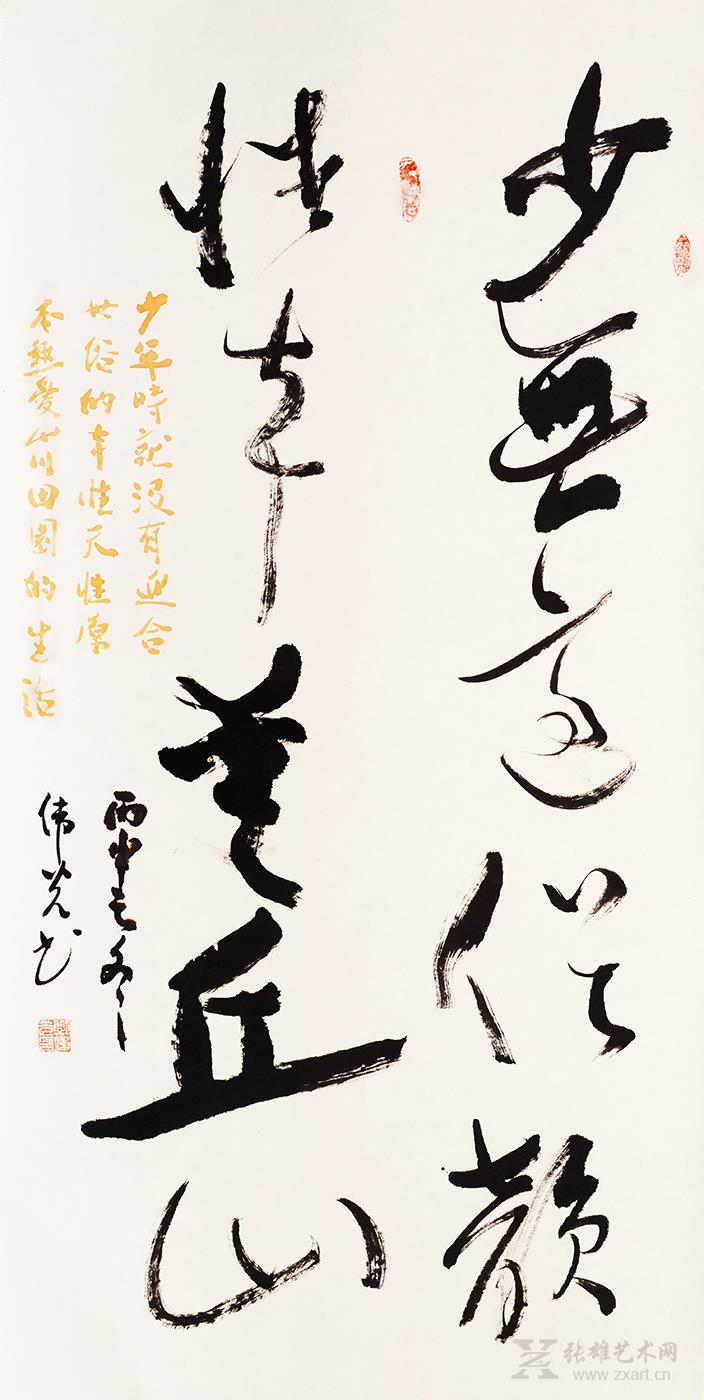 少無適俗韻
性本愛丘山
少年時就没有迎合
世俗的本性天性原
本熱愛山川田園的生活
丙申之冬
伟光书
张雄艺术网
www.zxart.cn